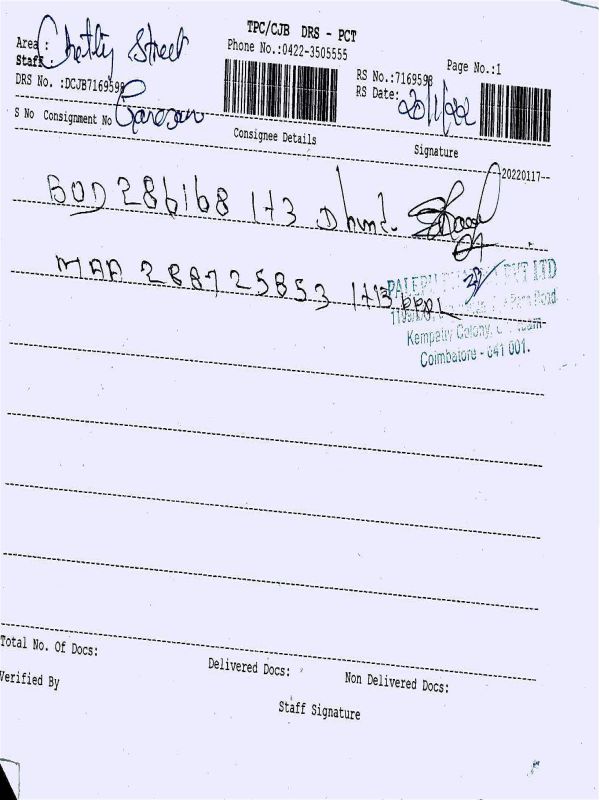 TPC/CJB DRS - PCT
Area : Chetty Street
Phone No.:0422-3505555
Page No.:1
Staff :
RS No.:7169598
DRS No. :DCJB7169598
RS Date: 20/1/22
S No Consignment No
Consignee Details
Signature
20220117--
BOD 286168 1+3
MAA 288725853 1+3 PPOL
PVT LTD
Kempatty Colony,
Coimbatore - 641 001.
Total No. Of Docs:
Delivered Docs:
Non Delivered Docs:
Verified By
Staff Signature